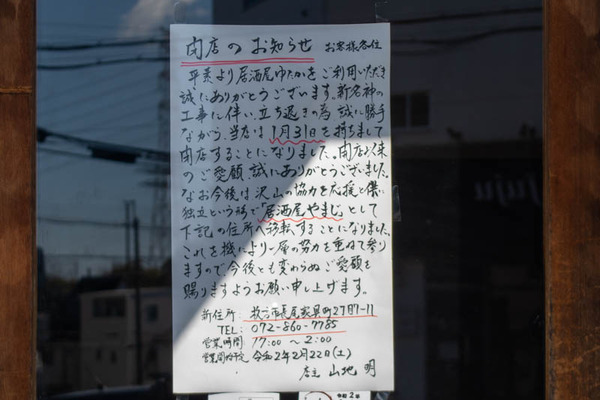 閉店のお知らせ お客様各位
平素より居酒屋ゆたかをご利用いただき
誠にありがとうございます。新名神の
工事に伴い、立ち退きの為 誠に勝手
ながら、当店は1月31日を持ちまして
閉店することになりました。開店以来
のご愛顧 誠にありがとうございました。
なお今後は 沢山の協力を応援と
独立という
「居酒屋やまじ」として
下記の住所へ移転することになりました。
これを機により一層の努力を重ねて参り
ますので、今後とも変わらぬご愛顧を
賜りますようお願い申し上げます。
新住所: 枚方市長尾家具町2丁目7-11
TEL: 072-860-7785
営業時間 17:00 ~ 2:00
営業開始予定 令和2年2月22日(土)
店主 山地 明
令和2年